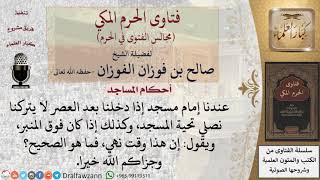 تنفيذ
فريق مشروع
كبار العلماء
فتاوى الحرم المكي
(مجالس الفتوى في الحرم)
لفضيلة الشيخ
صالح بن فوزان الفوزان - حفظه الله تعالى
أحكام المساجد
عندنا إمام مسجد إذا دخلنا بعد العصر لا يتركنا
نصلي تحية المسجد، وكذلك إذا كان فوق المنبر،
ويقول: إن هذا وقت نهي، فما هو الصحيح؟
وجزاكم الله خيرا.
فتاوى
الحرم المكي
سلسلة الفتاوى من
الكتب والمتون العلمية
وشروحها الصوتية
Dralfawzann